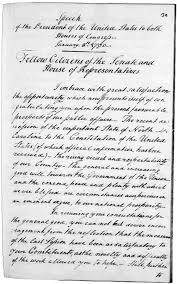 Speech
of the President of the United States to both
Houses of Congress
January 8th 1790
Fellow Citizens of the Senate and
House of Representatives
I embrace with great satisfaction
the opportunity which now presents itself of con-
gratulating you on the present favorable
prospects of our public affairs. The recent ac-
cession of the important State of North
Carolina to the Constitution of the United
States (of which official information has been
received) The rising credit and respectability
of our Country The general and increasing
good will towards the Government of the Union
and the concord, peace and plenty with which
we are blessed are circumstances auspicious
in an eminent degree, to our national prosperity.
In resuming your consultations for
the general good, you cannot but derive encou-
ragement from the reflection that the measures
of the last Session have been as satisfactory to
your Constituents, as the novelty and difficulty
of the work allowed you to hope. Still further